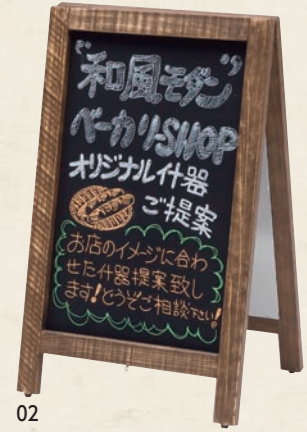 "和風モダン"
ベーカリーSHOP
オリジナル什器
ご提案
お店のイメージに合わ
せた什器提案致し
ます!どうぞご相談下さい!
02